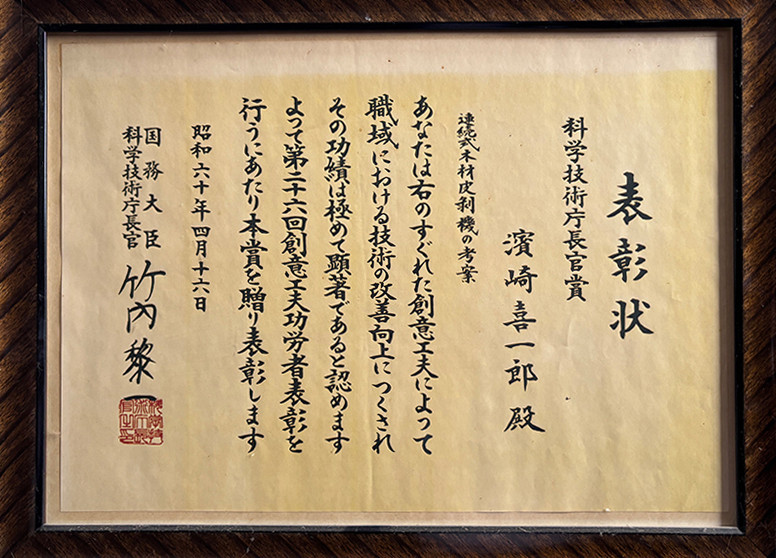 表彰状
科学技術庁長官賞
濱崎喜一郎殿
連続式木材皮剥機の考案
あなたは右のすぐれた創意工夫によって
職域における技術の改善向上につくされ
その功績は極めて顕著であると認めます
よって第二十六回創意工夫功労者表彰を
行うにあたり本賞を贈り表彰します
昭和六十年四月十六日
国務大臣
科学技術庁長官
竹内黎一